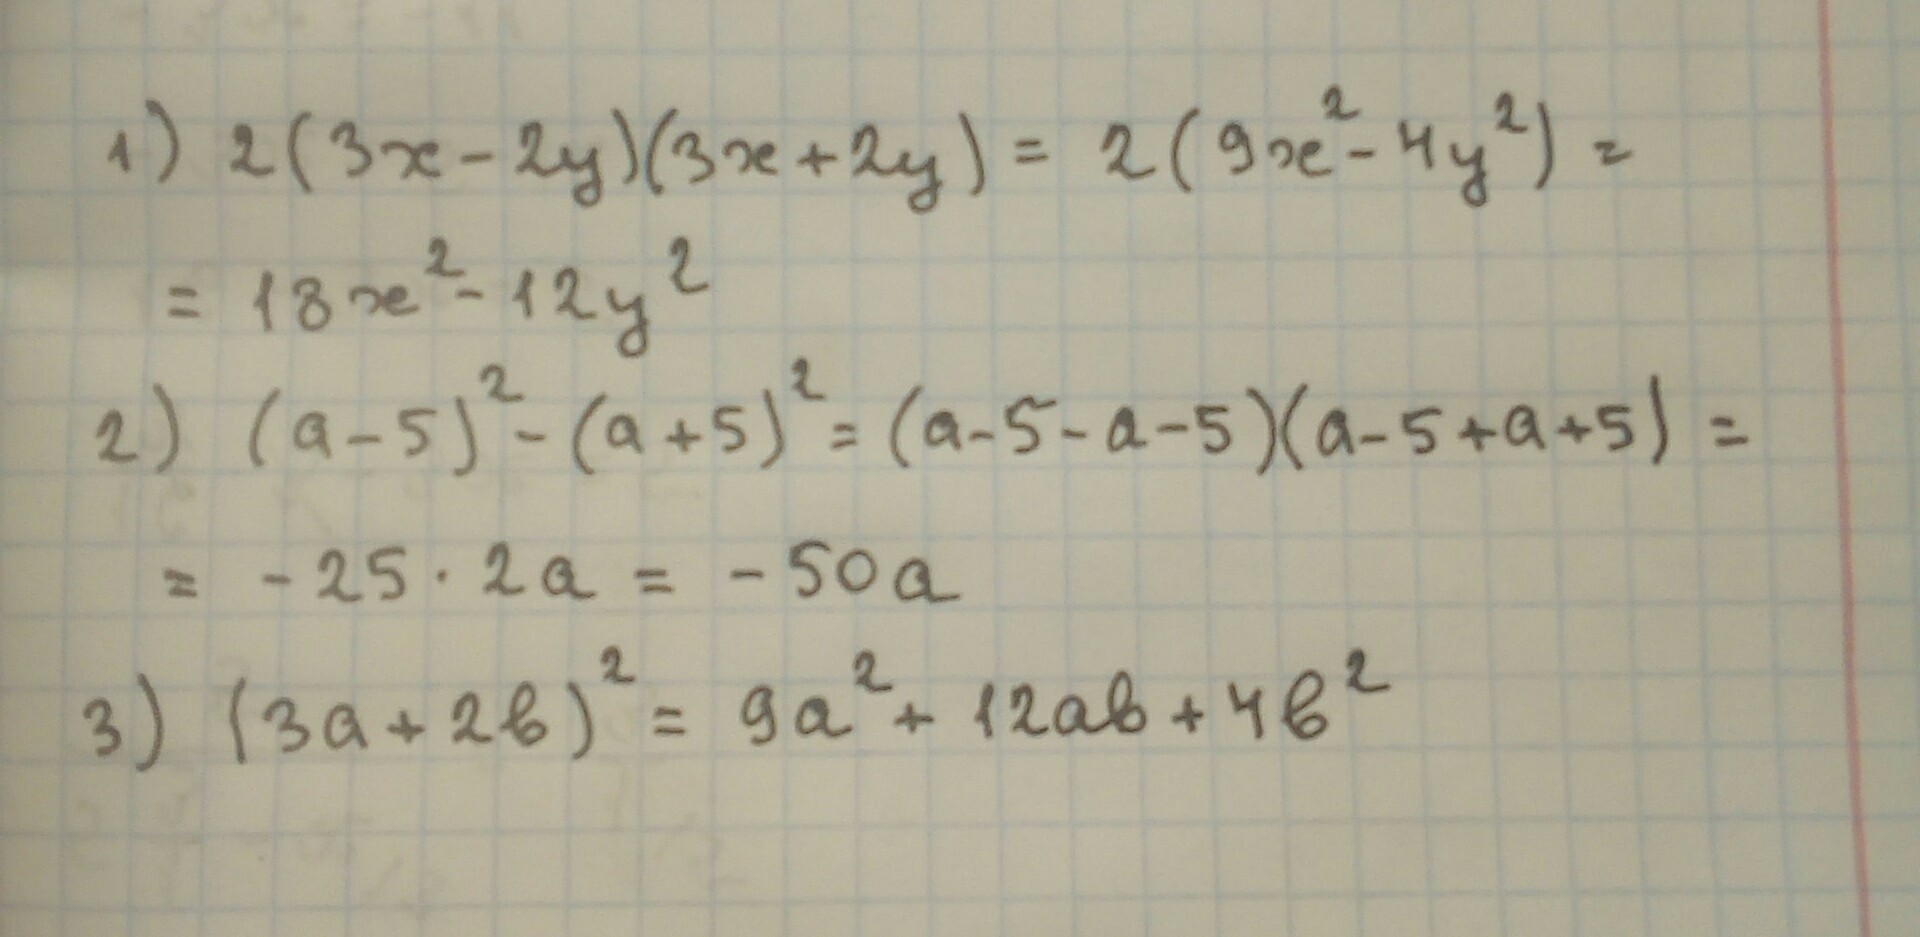 1) 2(3x-2y)(3x+2y) = 2(9x²-4y²) =
= 18x²-12y²
2) (a-5)²-(a+5)² = (a-5-a-5)(a-5+a+5) =
= -25·2a = -50a
3) (3a+2в)² = 9a²+12aв+4в²